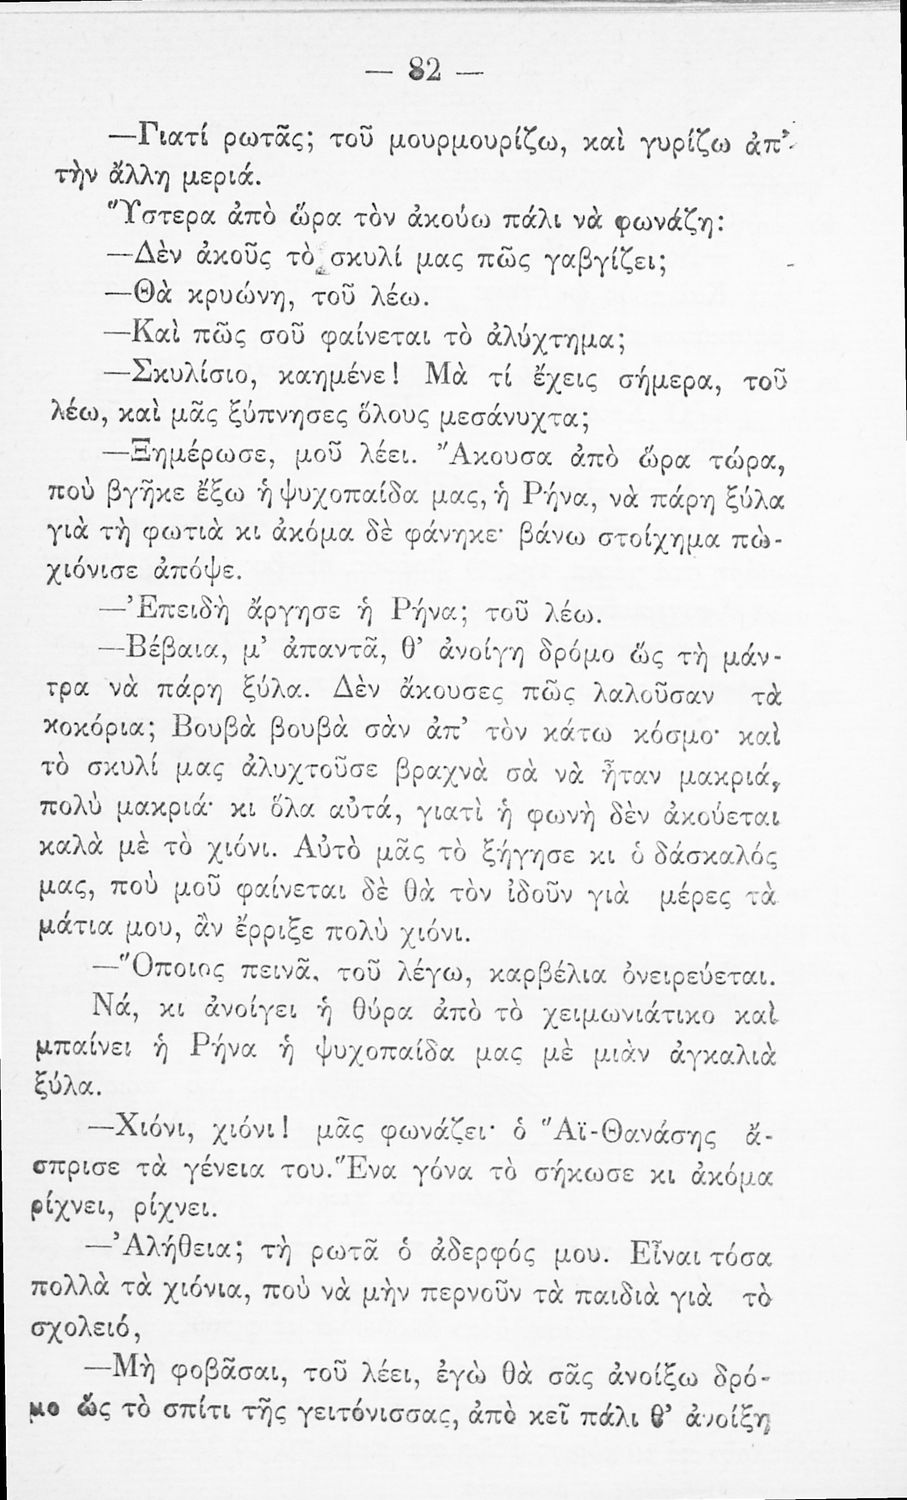 — 82 —
—Γιατί ρωτᾶς; τοῦ μουρμουρίζω, καὶ γυρίζω ἀπ’
τὴν ἄλλη μεριά.
Ὕστερα ἀπὸ ὥρα τὸν ἀκούω πάλι νὰ φωνάζη:
—Δὲν ἀκοῦς τὸ σκυλί μας πῶς γαβγίζει;
—Θὰ κρυώνη, τοῦ λέω.
—Καὶ πῶς σοῦ φαίνεται τὸ ἀλύχτημα;
—Σκυλίσιο, καημένε! Μὰ τί ἔχεις σήμερα, τοῦ
λέω, καὶ μᾶς ξύπνησες ὅλους μεσάνυχτα;
—Ξημέρωσε, μοῦ λέει. Ἄκουσα ἀπὸ ὥρα τώρα,
ποὺ βγῆκε ἔξω ἡ ψυχοπαίδα μας, ἡ Ρήνα, νὰ πάρη ξύλα
γιὰ τὴ φωτιὰ κι ἀκόμα δὲ φάνηκε· βάνω στοίχημα πὼ-
χιόνισε ἀπόψε.
—Ἐπειδὴ ἄργησε ἡ Ρήνα; τοῦ λέω.
—Βέβαια, μ’ ἀπαντᾶ, θ’ ἀνοίγη δρόμο ὥς τὴ μάν-
τρα νὰ πάρη ξύλα. Δὲν ἄκουσες πῶς λαλοῦσαν τὰ
κοκόρια; Βουβὰ βουβὰ σὰν ἀπ’ τὸν κάτω κόσμο· καὶ
τὸ σκυλί μας ἀλυχτοῦσε βραχνὰ σὰ νὰ ἦταν μακριά,
πολὺ μακριά· κι ὅλα αὐτά, γιατὶ ἡ φωνὴ δὲν ἀκούεται
καλὰ μὲ τὸ χιόνι. Αὐτὸ μᾶς τὸ ξήγησε κι ὁ δάσκαλός
μας, ποὺ μοῦ φαίνεται δὲ θὰ τὸν ἰδοῦν γιὰ μέρες τὰ
μάτια μου, ἂν ἔρριξε πολὺ χιόνι.
—Ὅποιος πεινᾶ, τοῦ λέγω, καρβέλια ὀνειρεύεται.
Νά, κι ἀνοίγει ἡ θύρα ἀπὸ τὸ χειμωνιάτικο καὶ
μπαίνει ἡ Ρήνα ἡ ψυχοπαίδα μας μὲ μιὰν ἀγκαλιὰ
ξύλα.
—Χιόνι, χιόνι! μᾶς φωνάζει· ὁ Ἅϊ-Θανάσης ἄ-
σπρισε τὰ γένεια του. Ἕνα γόνα τὸ σήκωσε κι ἀκόμα
ρίχνει, ρίχνει.
—Ἀλήθεια; τὴ ρωτᾶ ὁ ἀδερφός μου. Εἶναι τόσα
πολλὰ τὰ χιόνια, ποὺ νὰ μὴν περνοῦν τὰ παιδιὰ γιὰ τὸ
σχολειό,
—Μὴ φοβᾶσαι, τοῦ λέει, ἐγὼ θὰ σᾶς ἀνοίξω δρό-
μο ὥς τὸ σπίτι τῆς γειτόνισσας, ἀπὸ κεῖ πάλι θ’ ἀνοίξη